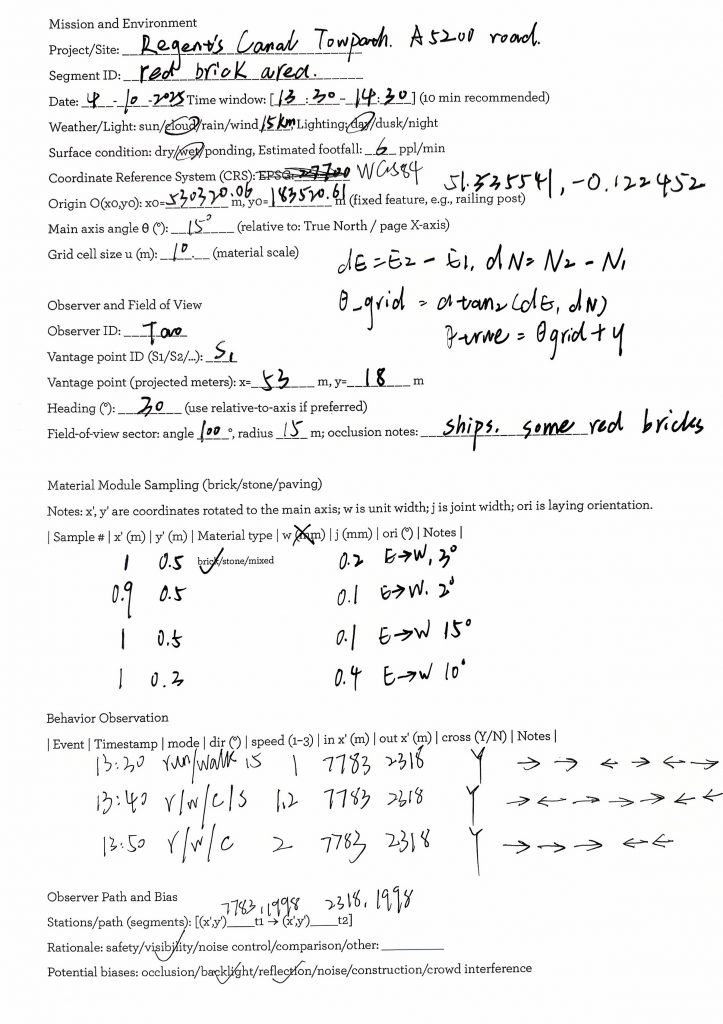 Mission and Environment
Project/Site: Regent's Canal Towpath. A5200 road.
Segment ID: red brick area.
Date: 4 - 10 - 2025 Time window: [ 13 : 30 - 14 : 30 ] (10 min recommended)
Weather/Light: sun/cloud/rain/wind 15km, Lighting: day/dusk/night
Surface condition: dry/wet/ponding, Estimated footfall: 6 ppl/min
Coordinate Reference System (CRS): EPSG: 27700 WGS84
51.535541, -0.122452
Origin O(x0,y0): x0= 530320.06 m, y0= 183520.61 m (fixed feature, e.g., railing post)
Main axis angle θ (°): 15° (relative to: True North / page X-axis)
Grid cell size u (m): 10. (material scale)
dE = E2 - E1, dN = N2 - N1
θ_grid = atan2 (dE, dN)
θ-true = θgrid + γ
Observer and Field of View
Observer ID: Tao
Vantage point ID (S1/S2/...): S1
Vantage point (projected meters): x= 53 m, y= 18 m
Heading (°): 30 (use relative-to-axis if preferred)
Field-of-view sector: angle 100 °, radius 15 m; occlusion notes: ships. some red bricks
Material Module Sampling (brick/stone/paving)
Notes: x', y' are coordinates rotated to the main axis; w is unit width; j is joint width; ori is laying orientation.
| Sample # | x' (m) | y' (m) | Material type | w (mm) | j (mm) | ori (°) | Notes |
1 0.5 brick/stone/mixed 0.2 E→W, 3°
0.9 0.5 0.1 E→W. 2°
1 0.5 0.1 E→W 15°
1 0.3 0.4 E→W 10°
Behavior Observation
| Event | Timestamp | mode | dir (°) | speed (1–3) | in x' (m) | out x' (m) | cross (Y/N) | Notes |
13:30 run/walk 15 1 7783 2318 Y → → ← ← →
13:40 r/w/c/s 1,2 7783 2318 Y → ← → → → ← ←
13:50 r/w/c 2 7783 2318 Y → → → ← ←
Observer Path and Bias
7783,1998 2318,1998
Stations/path (segments): [(x',y')____t1 → (x',y')____t2]
Rationale: safety/visibility/noise control/comparison/other: __________
Potential biases: occlusion/backlight/reflection/noise/construction/crowd interference